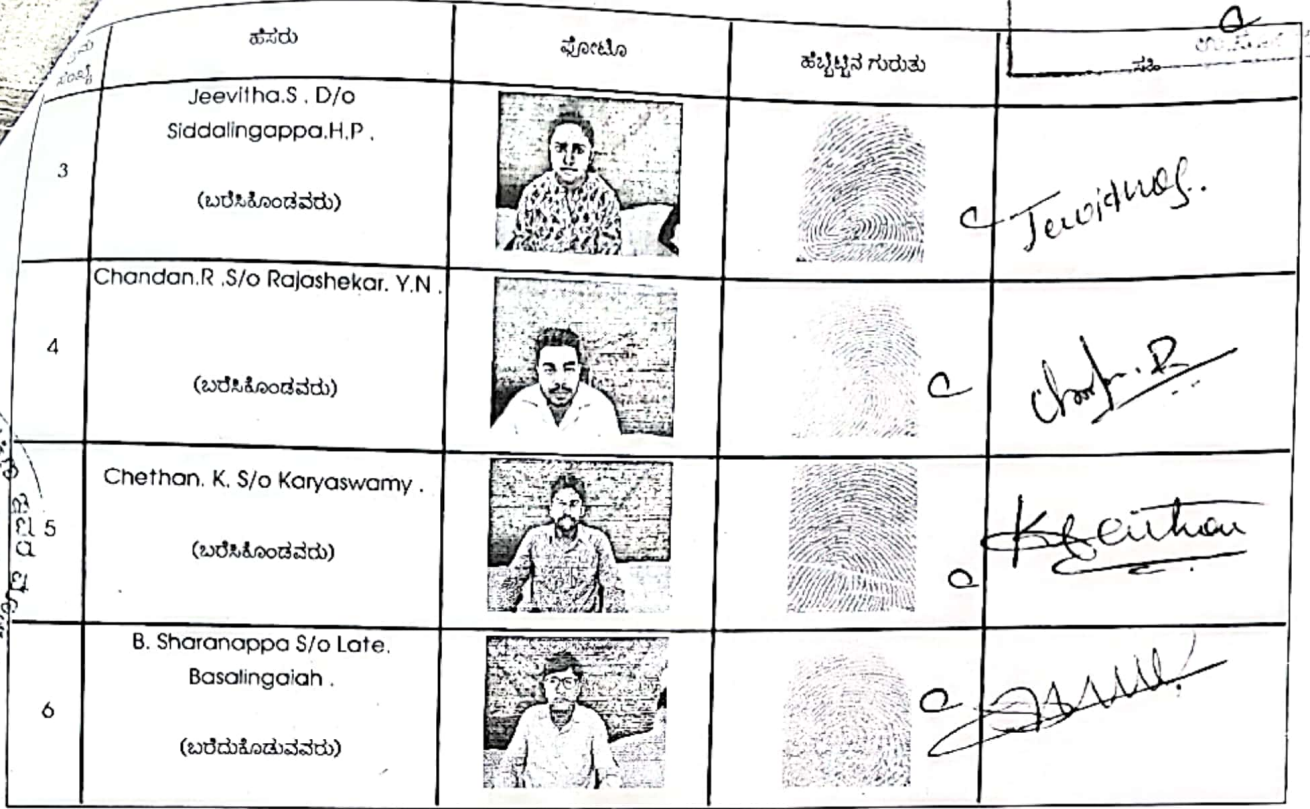 ಕ್ರಮ ಸಂಖ್ಯೆ ಹೆಸರು ಫೋಟೊ ಹೆಬ್ಬೆಟ್ಟಿನ ಗುರುತು ಸಹಿ
Jeevitha.S . D/o
Siddalingappa.H.P .
3
(ಬರೆಸಿಕೊಂಡವರು)
Chandan.R .S/o Rajashekar. Y.N .
4
(ಬರೆಸಿಕೊಂಡವರು)
Chethan. K. S/o Karyaswamy .
5
(ಬರೆಸಿಕೊಂಡವರು)
B. Sharanappa S/o Late.
Basalingaiah .
6
(ಬರೆದುಕೊಡುವವರು)